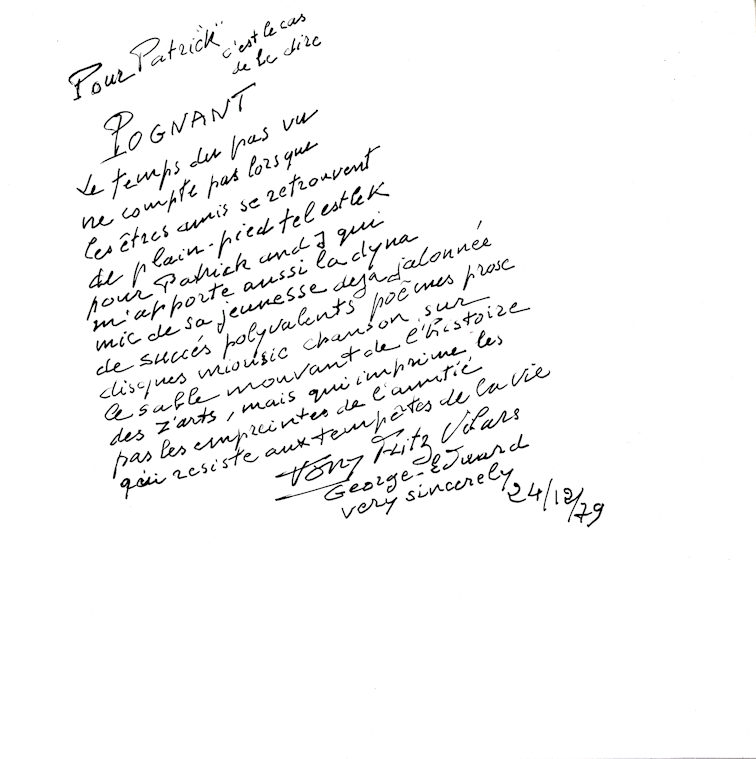 Pour Patrick" c'est le cas
de le dire
POGNANT
Le temps du pas vu
ne compte pas lorsque
les êtres amis se retrouvent
de plain-pied tel est le k
pour Patrick and I qui
m'apporte aussi la dyna
mic de sa jeunesse dejà jalonnée
de succés polyvalents poëmes prose
disques miousic chanson sur
le sable mouvant de l'histoire
des z'arts, mais qui imprime les
pas les empreintes de l'amitié
qui resiste aux tempêtes de la vie
Tony Fritz Vilars
George-Edward
very sincerely
24/12/79